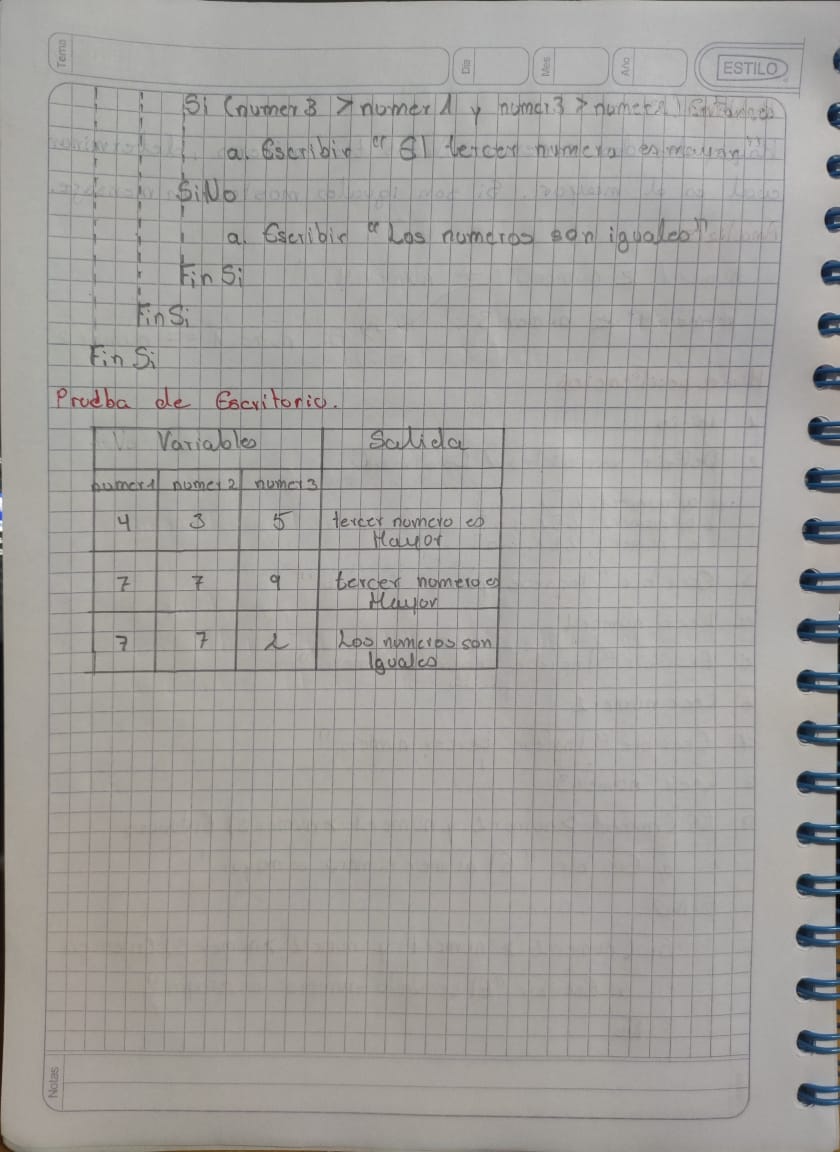 Tema
Dia
Mes
Año
ESTILO
Si (numer3 > numer1 y numer3 > numer2) Entonces
a. Escribir "El tercer numero es mayor"
SiNo
a. Escribir "Los numeros son iguales"
Fin Si
Fin Si
Fin Si
Prueba de Escritorio.
Variables Salida
numer1 numer2 numer3
4 3 5 tercer numero es
Mayor
7 7 9 tercer numero es
Mayor
7 7 2 Los numeros son
Iguales
Notas